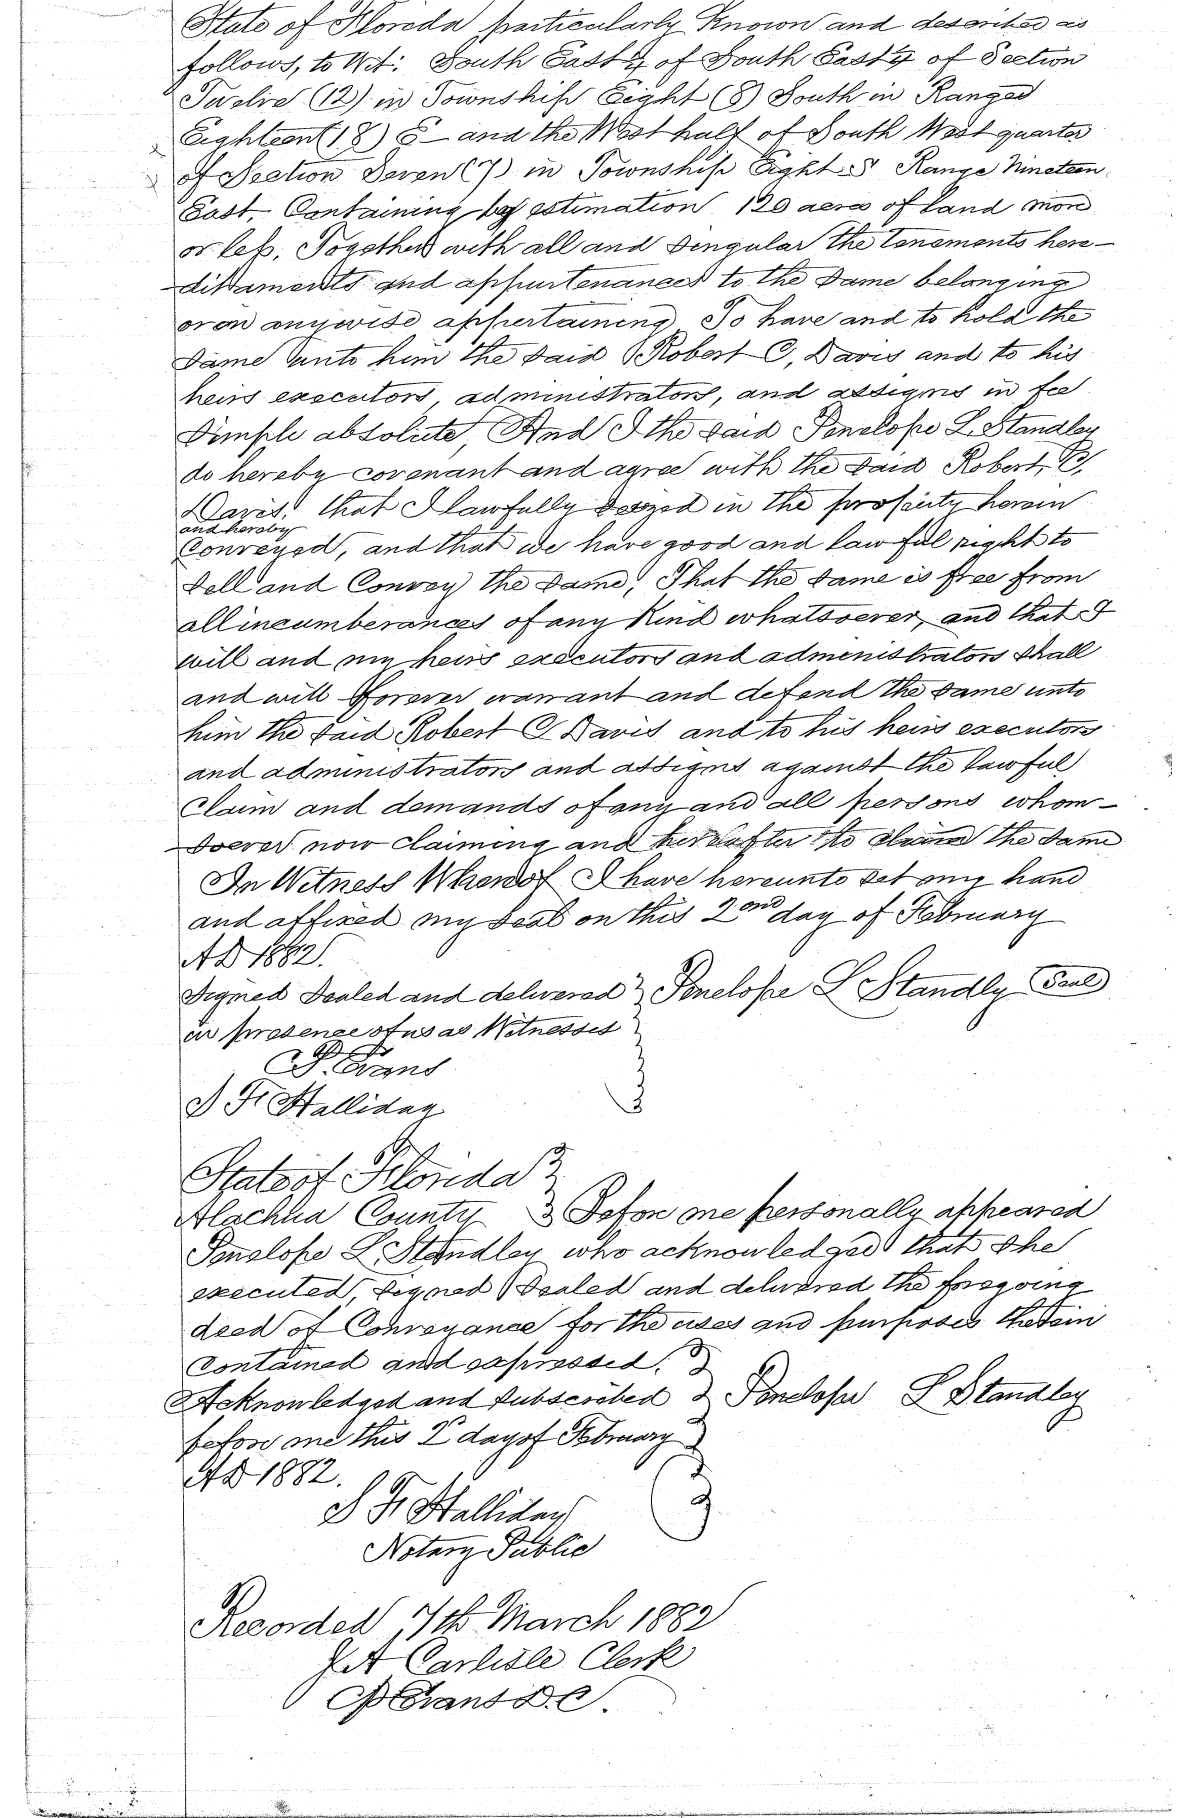 State of Florida particularly Known and described as
follows, to Wit: South East ¼ of South East ¼ of Section
Twelve (12) in Township Eight (8) South in Range
Eighteen (18) E— and the West half of South West quarter
of Section Seven (7) in Township Eight S Range Nineteen
East,— Containing by estimation 120 acres of land more
or less, Together with all and Singular the tenements here-
ditaments and appurtenances to the Same belonging
or on anywise appertaining To have and to hold the
Same unto him the Said Robert C, Davis and to his
heirs executors, administrators, and assigns in fee
Simple absolute, And I the said Penelope L. Standley
do hereby covenant and agree with the Said Robert C,
Davis, that I lawfully Seized in the property herein
and hereby
Conveyed, and that we have good and lawful right to
Sell and Convey the Same, That the Same is free from
all incumberances of any Kind whatsoever, and that I
will and my heirs executors and administrators Shall
and will forever warrant and defend the Same unto
him the Said Robert C Davis and to his heirs executors
and administrators and assigns against the lawful
Claim and demands of any and all persons whom-
soever now claiming and hereafter to claim the Same
In Witness Whereof I have hereunto Set my hand
and affixed my Seal on this 2nd day of February
AD 1882.
Signed Sealed and delivered } Penelope L Standly Seal
in presence of us as Witnesses
P. Evans
S F Halliday
State of Florida }
Alachua County } Before me personally appeared
Penelope L. Standley who acknowledged that She
executed, Signed Sealed and delivered the foregoing
deed of Conveyance for the uses and purposes therein
Contained and expressed.
Acknowledged and Subscribed } Penelope L Standley
before me this 2d day of February
AD 1882.
S F Halliday
Notary Public
Recorded 7th March 1882
J A Carlisle Clerk
P Evans D.C.